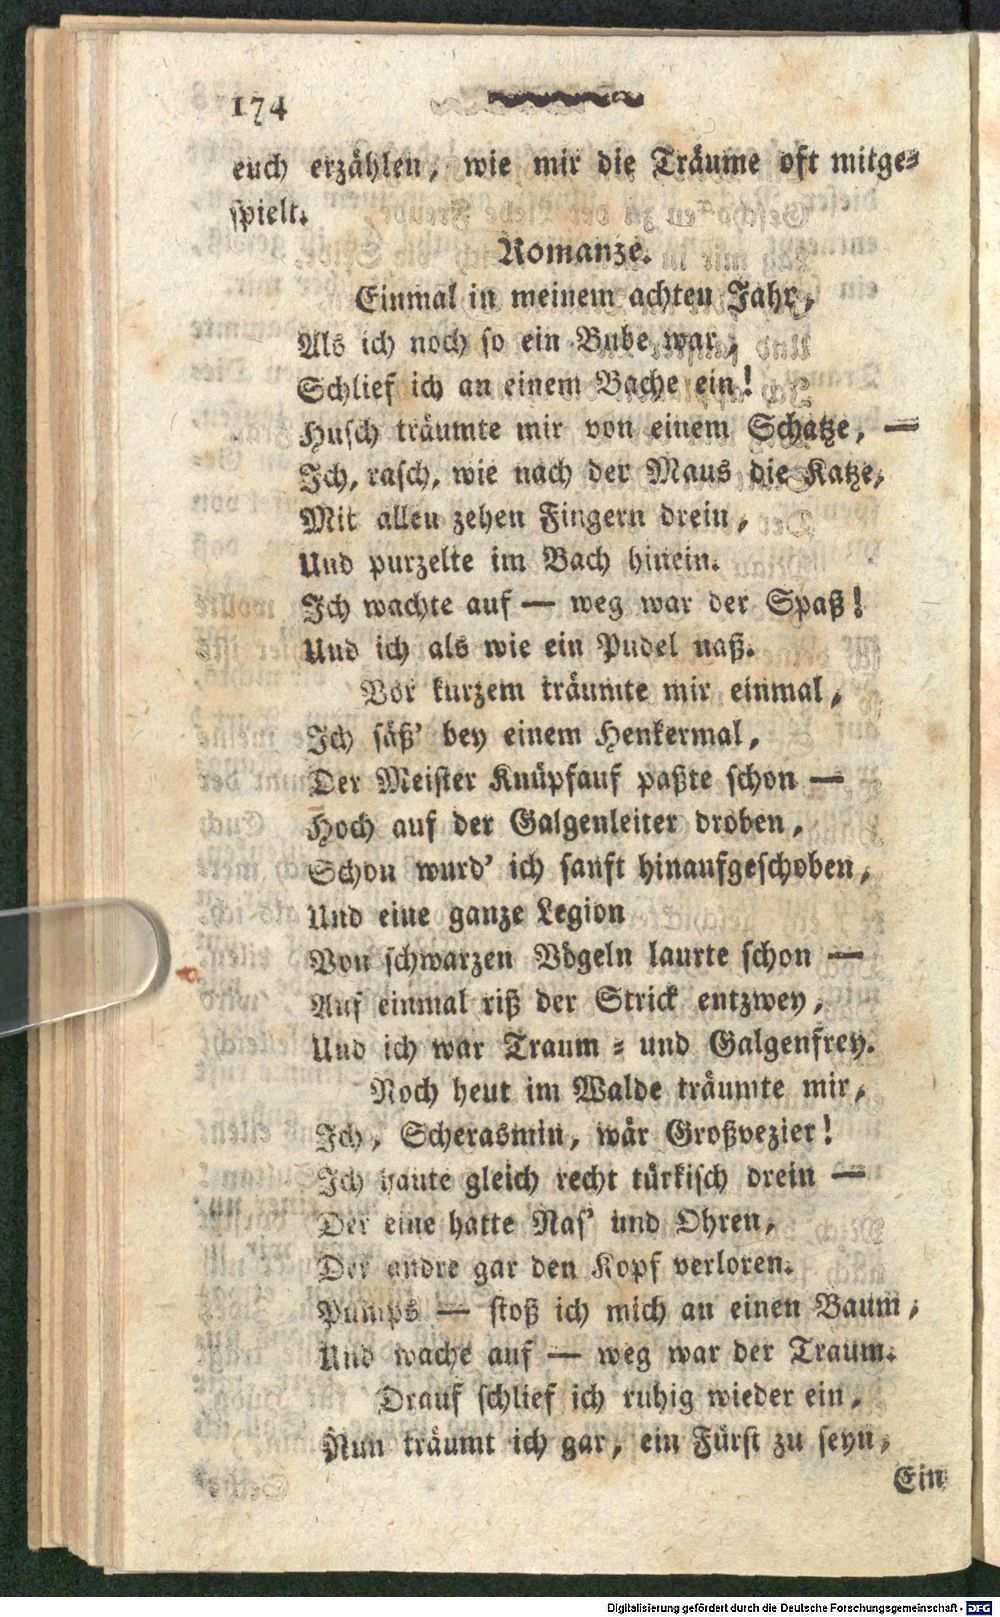 174
euch erzählen, wie mir die Träume oft mitge-
spielt.
Romanze.
Einmal in meinem achten Jahr,
Als ich noch so ein Bube war,
Schlief ich an einem Bache ein!
Husch träumte mir von einem Schatze, —
Ich, rasch, wie nach der Maus die Katze,
Mit allen zehen Fingern drein,
Und purzelte im Bach hinein.
Ich wachte auf — weg war der Spaß!
Und ich als wie ein Pudel naß.
Vor kurzem träumte mir einmal,
Ich säß' bey einem Henkermal,
Der Meister Knüpfauf paßte schon —
Hoch auf der Galgenleiter droben,
Schon wurd' ich sanft hinaufgeschoben,
Und eine ganze Legion
Von schwarzen Vögeln laurte schon —
Auf einmal riß der Strick entzwey,
Und ich war Traum- und Galgenfrey.
Noch heut im Walde träumte mir,
Ich, Scherasmin, wär Großvezier!
Ich haute gleich recht türkisch drein —
Der eine hatte Nas' und Ohren,
Der andre gar den Kopf verloren.
Pumps — stoß ich mich an einen Baum,
Und wache auf — weg war der Traum.
Drauf schlief ich ruhig wieder ein,
Nun träumt ich gar, ein Fürst zu seyn,
Ein
Digitalisierung gefördert durch die Deutsche Forschungsgemeinschaft - DFG